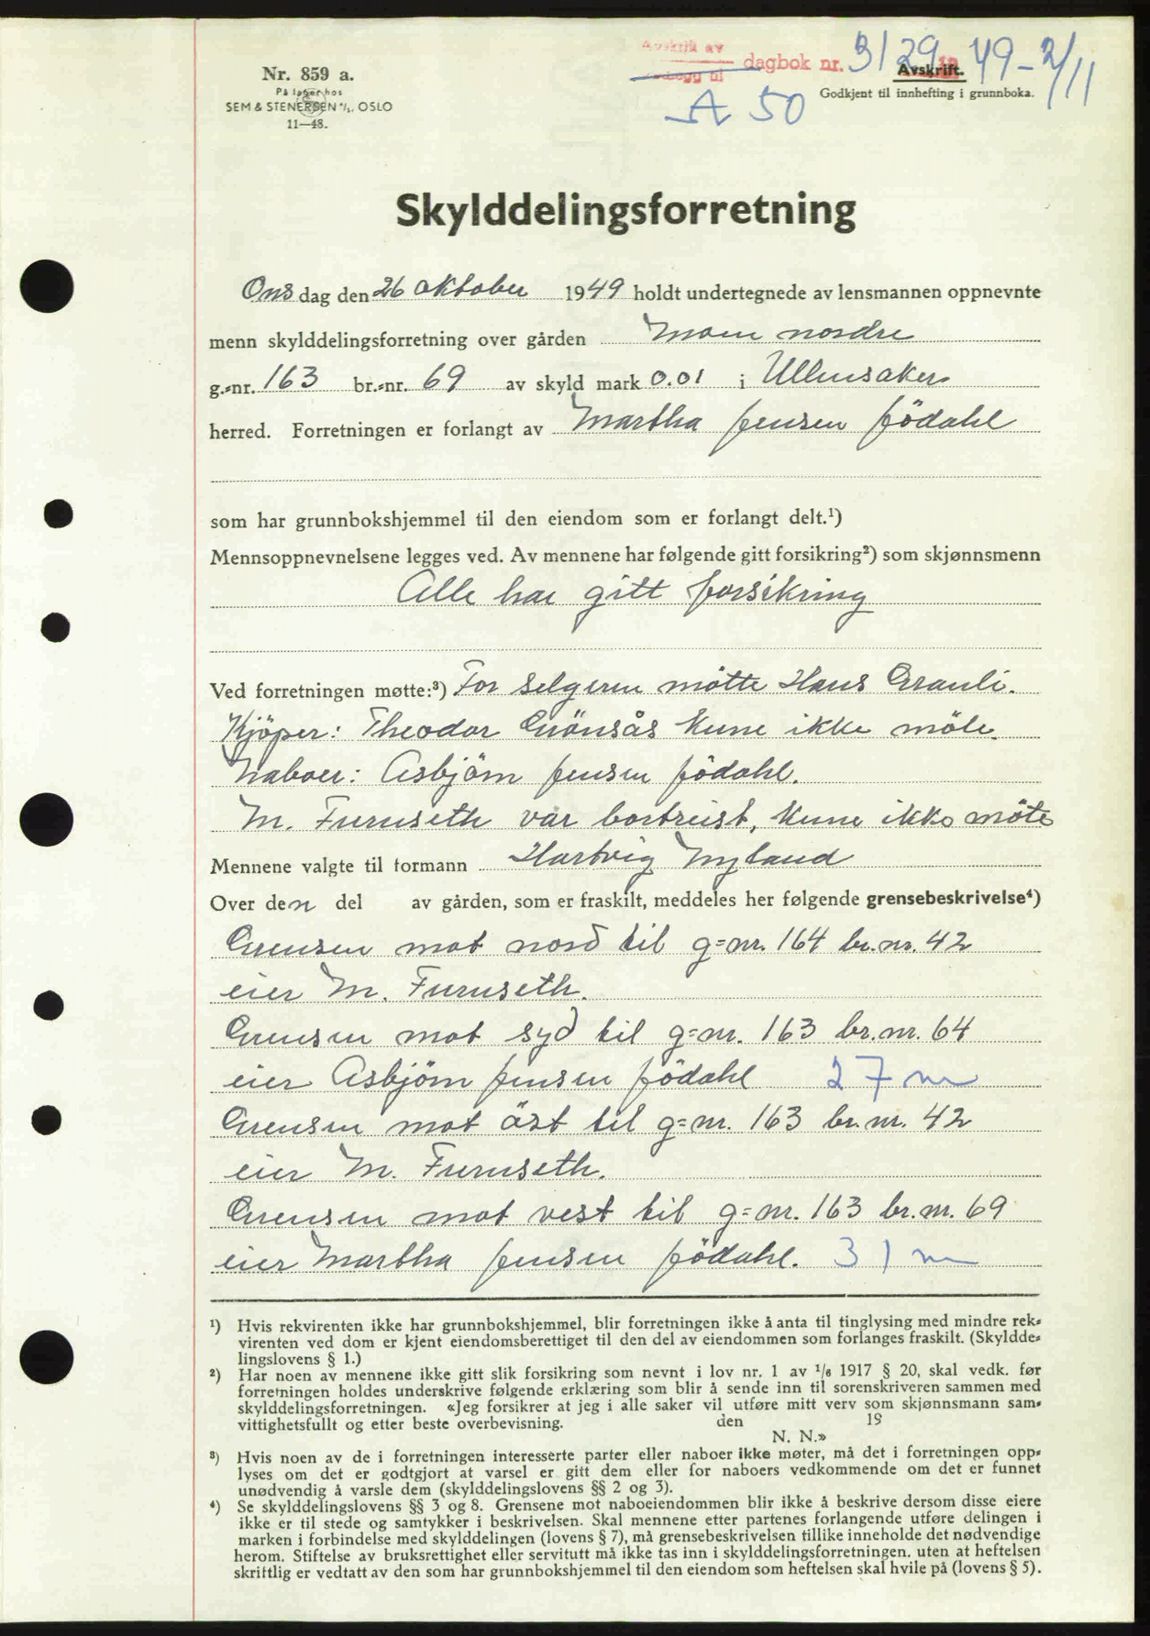 Avskrift av
dagbok nr. 3129 49 - 2/11
A 50
Avskrift.
Godkjent til innhefting i grunnboka.
Nr. 859 a.
På lager hos
SEM & STENERSEN A/S, OSLO
11—48.
Skylddelingsforretning
Ons dag den 26 oktober 1949 holdt undertegnede av lensmannen oppnevnte
menn skylddelingsforretning over gården Moen nordre
g.-nr. 163 br.-nr. 69 av skyld mark 0.01 i Ullensaker
herred. Forretningen er forlangt av Martha Jensen Jödahl
som har grunnbokshjemmel til den eiendom som er forlangt delt.¹)
Mennsoppnevnelsene legges ved. Av mennene har følgende gitt forsikring²) som skjønnsmenn
Alle har gitt forsikring
Ved forretningen møtte:³) For selgeren mötte Hans Grauli.
Kjöper: Theodor Grönsås kune ikke möte.
Naboer: Asbjörn Jensen Jödahl.
M. Furuseth var bortreist, kune ikke möte
Mennene valgte til formann Hartvig Nyland
Over den del av gården, som er fraskilt, meddeles her følgende grensebeskrivelse⁴)
Grensen mot nord til g=nr. 164 br.nr. 42
eier M. Furuseth.
Grensen mot syd til g=nr. 163 br.nr. 64
eier Asbjörn Jensen Jödahl 27 m
Grensen mot öst til g=nr. 163 br.nr. 42
eier M. Furuseth.
Grensen mot vest til g=nr. 163 br.nr. 69
eier Martha Jensen Jödahl. 31 m
¹) Hvis rekvirenten ikke har grunnbokshjemmel, blir forretningen ikke å anta til tinglysing med mindre rek-
virenten ved dom er kjent eiendomsberettiget til den del av eiendommen som forlanges fraskilt. (Skyldde-
lingslovens § 1.)
²) Har noen av mennene ikke gitt slik forsikring som nevnt i lov nr. 1 av 1/6 1917 § 20, skal vedk. før
forretningen holdes underskrive følgende erklæring som blir å sende inn til sorenskriveren sammen med
skylddelingsforretningen. «Jeg forsikrer at jeg i alle saker vil utføre mitt verv som skjønnsmann sam-
vittighetsfullt og etter beste overbevisning. den 19
N. N.»
³) Hvis noen av de i forretningen interesserte parter eller naboer ikke møter, må det i forretningen opp-
lyses om det er godtgjort at varsel er gitt dem eller for naboers vedkommende om det er funnet
unødvendig å varsle dem (skylddelingslovens §§ 2 og 3).
⁴) Se skylddelingslovens §§ 3 og 8. Grensene mot naboeiendommen blir ikke å beskrive dersom disse eiere
ikke er til stede og samtykker i beskrivelsen. Skal mennene etter partenes forlangende utføre delingen i
marken i forbindelse med skylddelingen (lovens § 7), må grensebeskrivelsen tillike inneholde det nødvendige
herom. Stiftelse av bruksrettighet eller servitutt må ikke tas inn i skylddelingsforretningen, uten at heftelsen
skriftlig er vedtatt av den som har grunnbokshjemmel til den eiendom som heftelsen skal hvile på (lovens § 5).